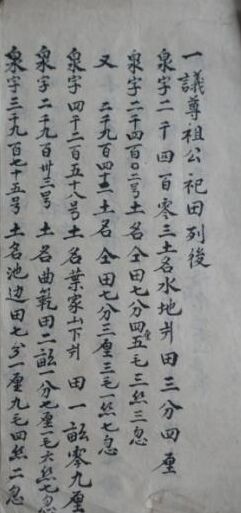 一議尊祖公祀田列後
泉字二千四百零三土名水地丬田三分四厘
泉字二千四百〇二号土名仝田七分四厘五毛三丝三忽
又 二千九百四十二土名仝田七分三厘三毛一丝七忽
泉字四千二百五十八号土名葉家山下丬田一畝零九厘
泉字二千九百卅三号土名曲乾田二畝一分七厘一毛六丝七忽
泉字三千九百七十五号土名池边田七分一厘九毛四丝二忽